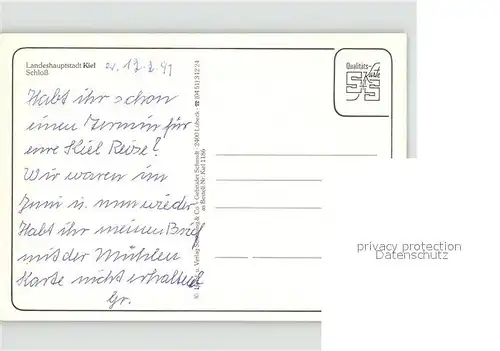 Landeshauptstadt Kiel
Schloß
Habt ihr schon
einen Termin für
eure Kiel Reise?
Wir waren im
Juni u. nun wieder
Habt ihr meinen Brief
mit der Mühlen
Karte nicht erhalten
Gr.
Verlag Schöning & Co + Gebrüder Schmidt · 2400 Lübeck · ☎ (0451) 31224
Bestell. Nr. Kiel 1186
Qualitäts-
Karte
privacy protection
Datenschutz